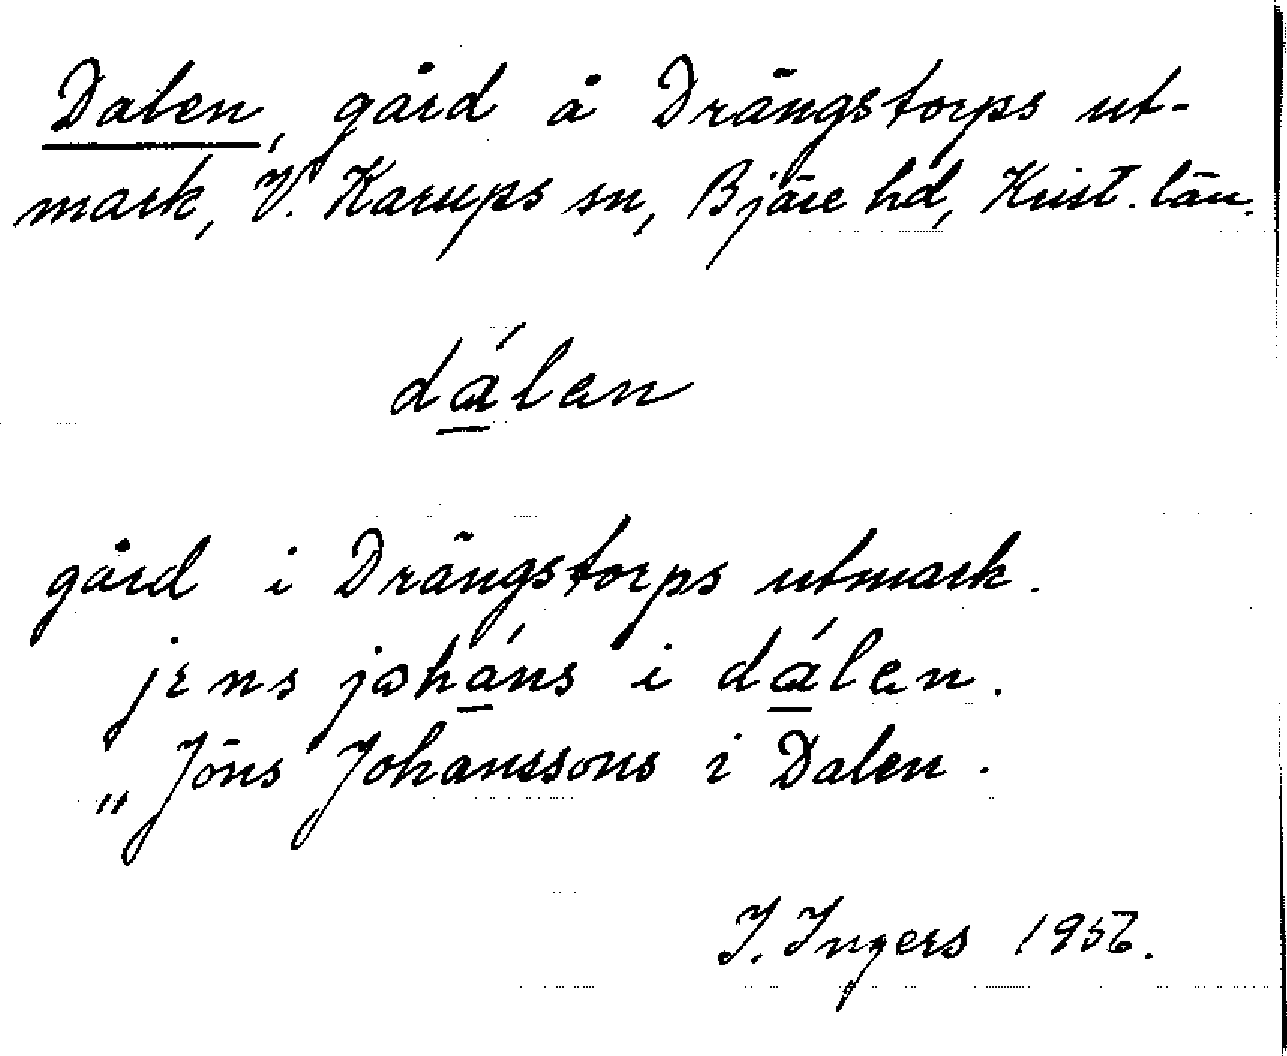 Dalen, gård å Drängstorps ut-
mark, V. Karups sn, Bjäre hd, Krist. län.
dálen
gård i Drängstorps utmark.
jens joháns i dálen.
„ Jöns Johanssons i Dalen.
I. Ingers 1956.